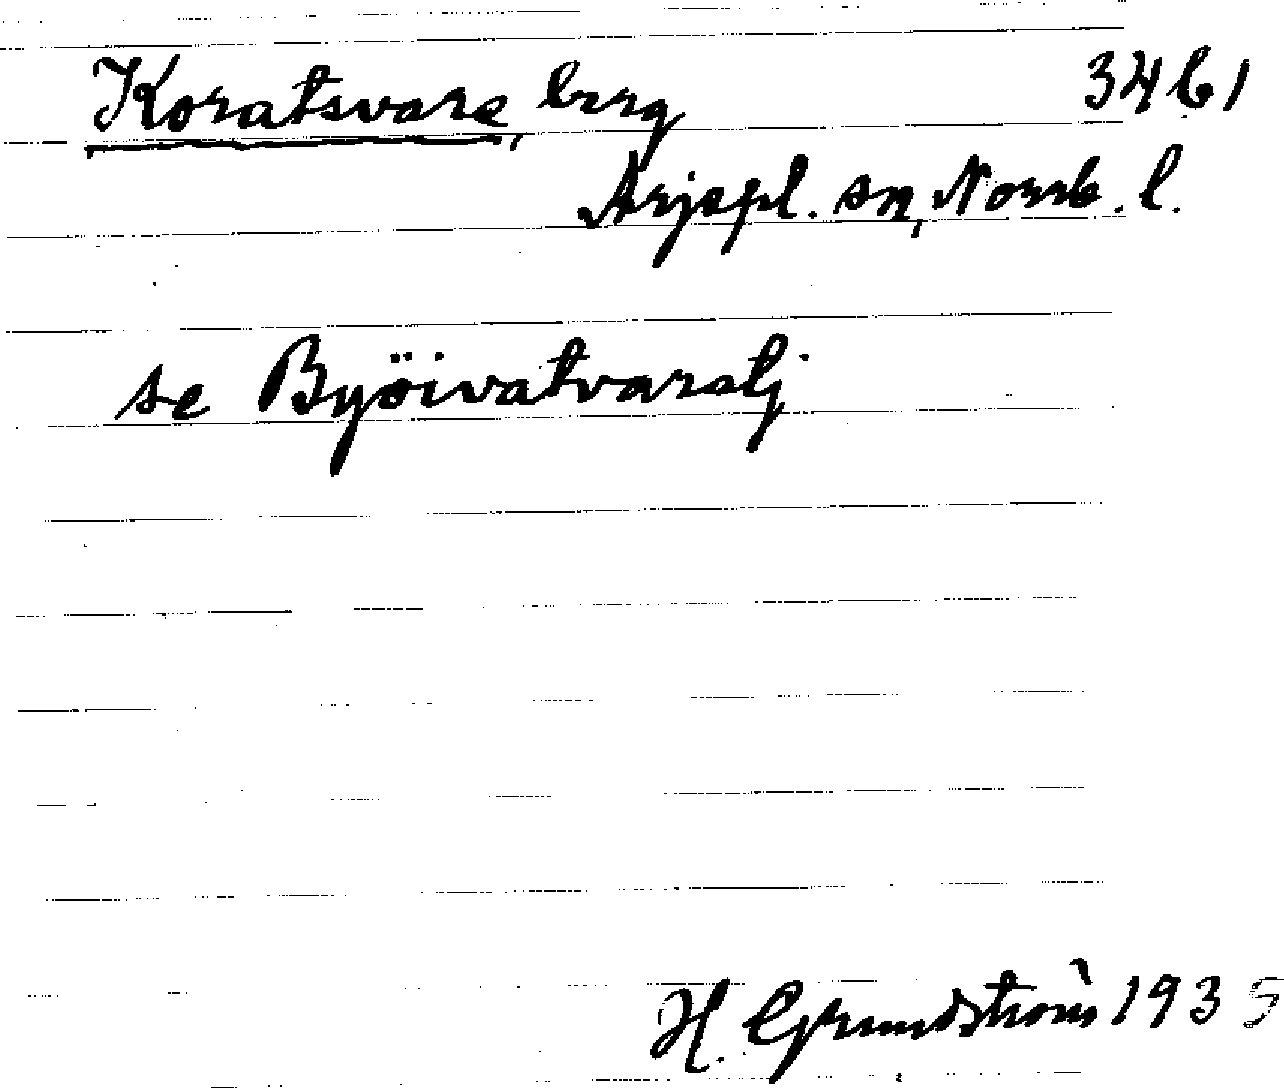 Koratsvare, berg 3461
Arjepl. sn, Norrb. l.
se Byöivatvaratj
H. Grundström 1935